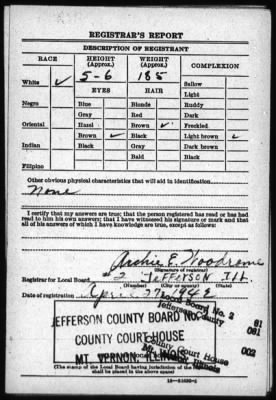 REGISTRAR'S REPORT
DESCRIPTION OF REGISTRANT
RACE HEIGHT (Approx.) WEIGHT (Approx.) COMPLEXION
White ✓ 5-6 185 Sallow
Light
EYES HAIR
Negro Blue Blonde Ruddy
Gray Red Dark
Oriental Hazel Brown ✓ Freckled
Brown ✓ Black Light brown ✓
Indian Black Gray Dark brown
Bald Black
Filipino
Other obvious physical characteristics that will aid in identification
None
I certify that my answers are true; that the person registered has read or has had
read to him his own answers; that I have witnessed his signature or mark and that
all of his answers of which I have knowledge are true, except as follows:
Archie E. Woodrome
(Signature of registrar)
Registrar for Local Board 2 JEFFERSON ILL.
(Number) (City or county) (State)
Date of registration April 27 1942
Local Board No. 2 81
Jefferson County 081
002
JEFFERSON COUNTY BOARD NO.
COUNTY COURT HOUSE
MT VERNON, ILLINOIS
County Court House
Illinois
(The stamp of the Local Board having jurisdiction of the
shall be placed in the above space)